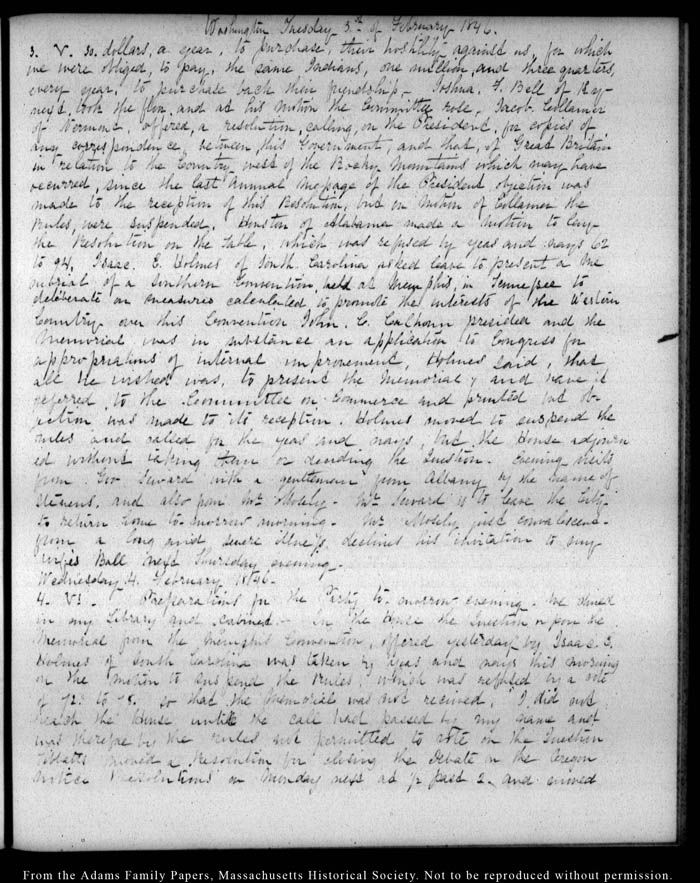 Washington Tuesday 3.d of February 1846.
3. V. 30. dollars, a year, to purchase their hostility against us, for which
we were obliged, to pay, the same Indians, one million, and three quarters,
every year, to purchase back their friendship - Joshua. F. Bell of Ky-
next, took the floor, and at his motion the Committee rose. Jacob Collamer
of Vermont, offered, a resolution, calling, on the President, for copies of
any correspondence, between this Government, and that, of Great Britain
in relation to the Country west of the Rocky Mountains which may have
occurred, since the last annual message of the President objection was
made to the reception of this Resolution, but on motion of Collamer the
Rules, were suspended. Houston of Alabama made a motion to lay
the Resolution on the table, which was refused by yeas and nays 62
to 94. Isaac. E. Holmes of South Carolina asked leave to present a Me
morial of a Southern Convention, held at Memphis, in Tennessee to
deliberate on measures calculated, to promote the interests of the Western
Country over this Convention John. C. Calhoun presided and the
Memorial, was in substance an application to Congress for
appropriations of internal improvement, Holmes said, that
all he wished was, to present the Memorial, and have it
referred to the Committee on Commerce and printed but ob-
jection was made to its reception. Holmes moved to suspend the
rules and called for the yeas and nays, but the House adjourn
ed without taking them or deciding the Question. Evening visits
from Gov Seward with a gentleman from Albany by the name of
Stevens, and also from Mr Mosely - Mr Seward is to leave the City
to return home to-morrow morning - Mr Mosely just convalescent
from a long and severe illness, declines his invitation to my
Ball next Thursday evening.
Wednesday 4. February 1846-
4. VI. Preparations for the Party to-morrow evening. We dined
in my Library and cabinet. In the House the Question upon the
Memorial from the Memphis Convention, offered yesterday by Isaac. E.
Holmes of South Carolina was taken by yeas and nays this morning
on the motion to suspend the rules, which was refused by a vote
of 72 to 75. so that the Memorial was not received. I did not
reach the House until the call had passed by my name and
was therefore by the rules not permitted to vote on the Question
moved a Resolution for closing the Debate on the Oregon
notice Resolutions on Monday next at ½ past 2. and moved
From the Adams Family Papers, Massachusetts Historical Society. Not to be reproduced without permission.